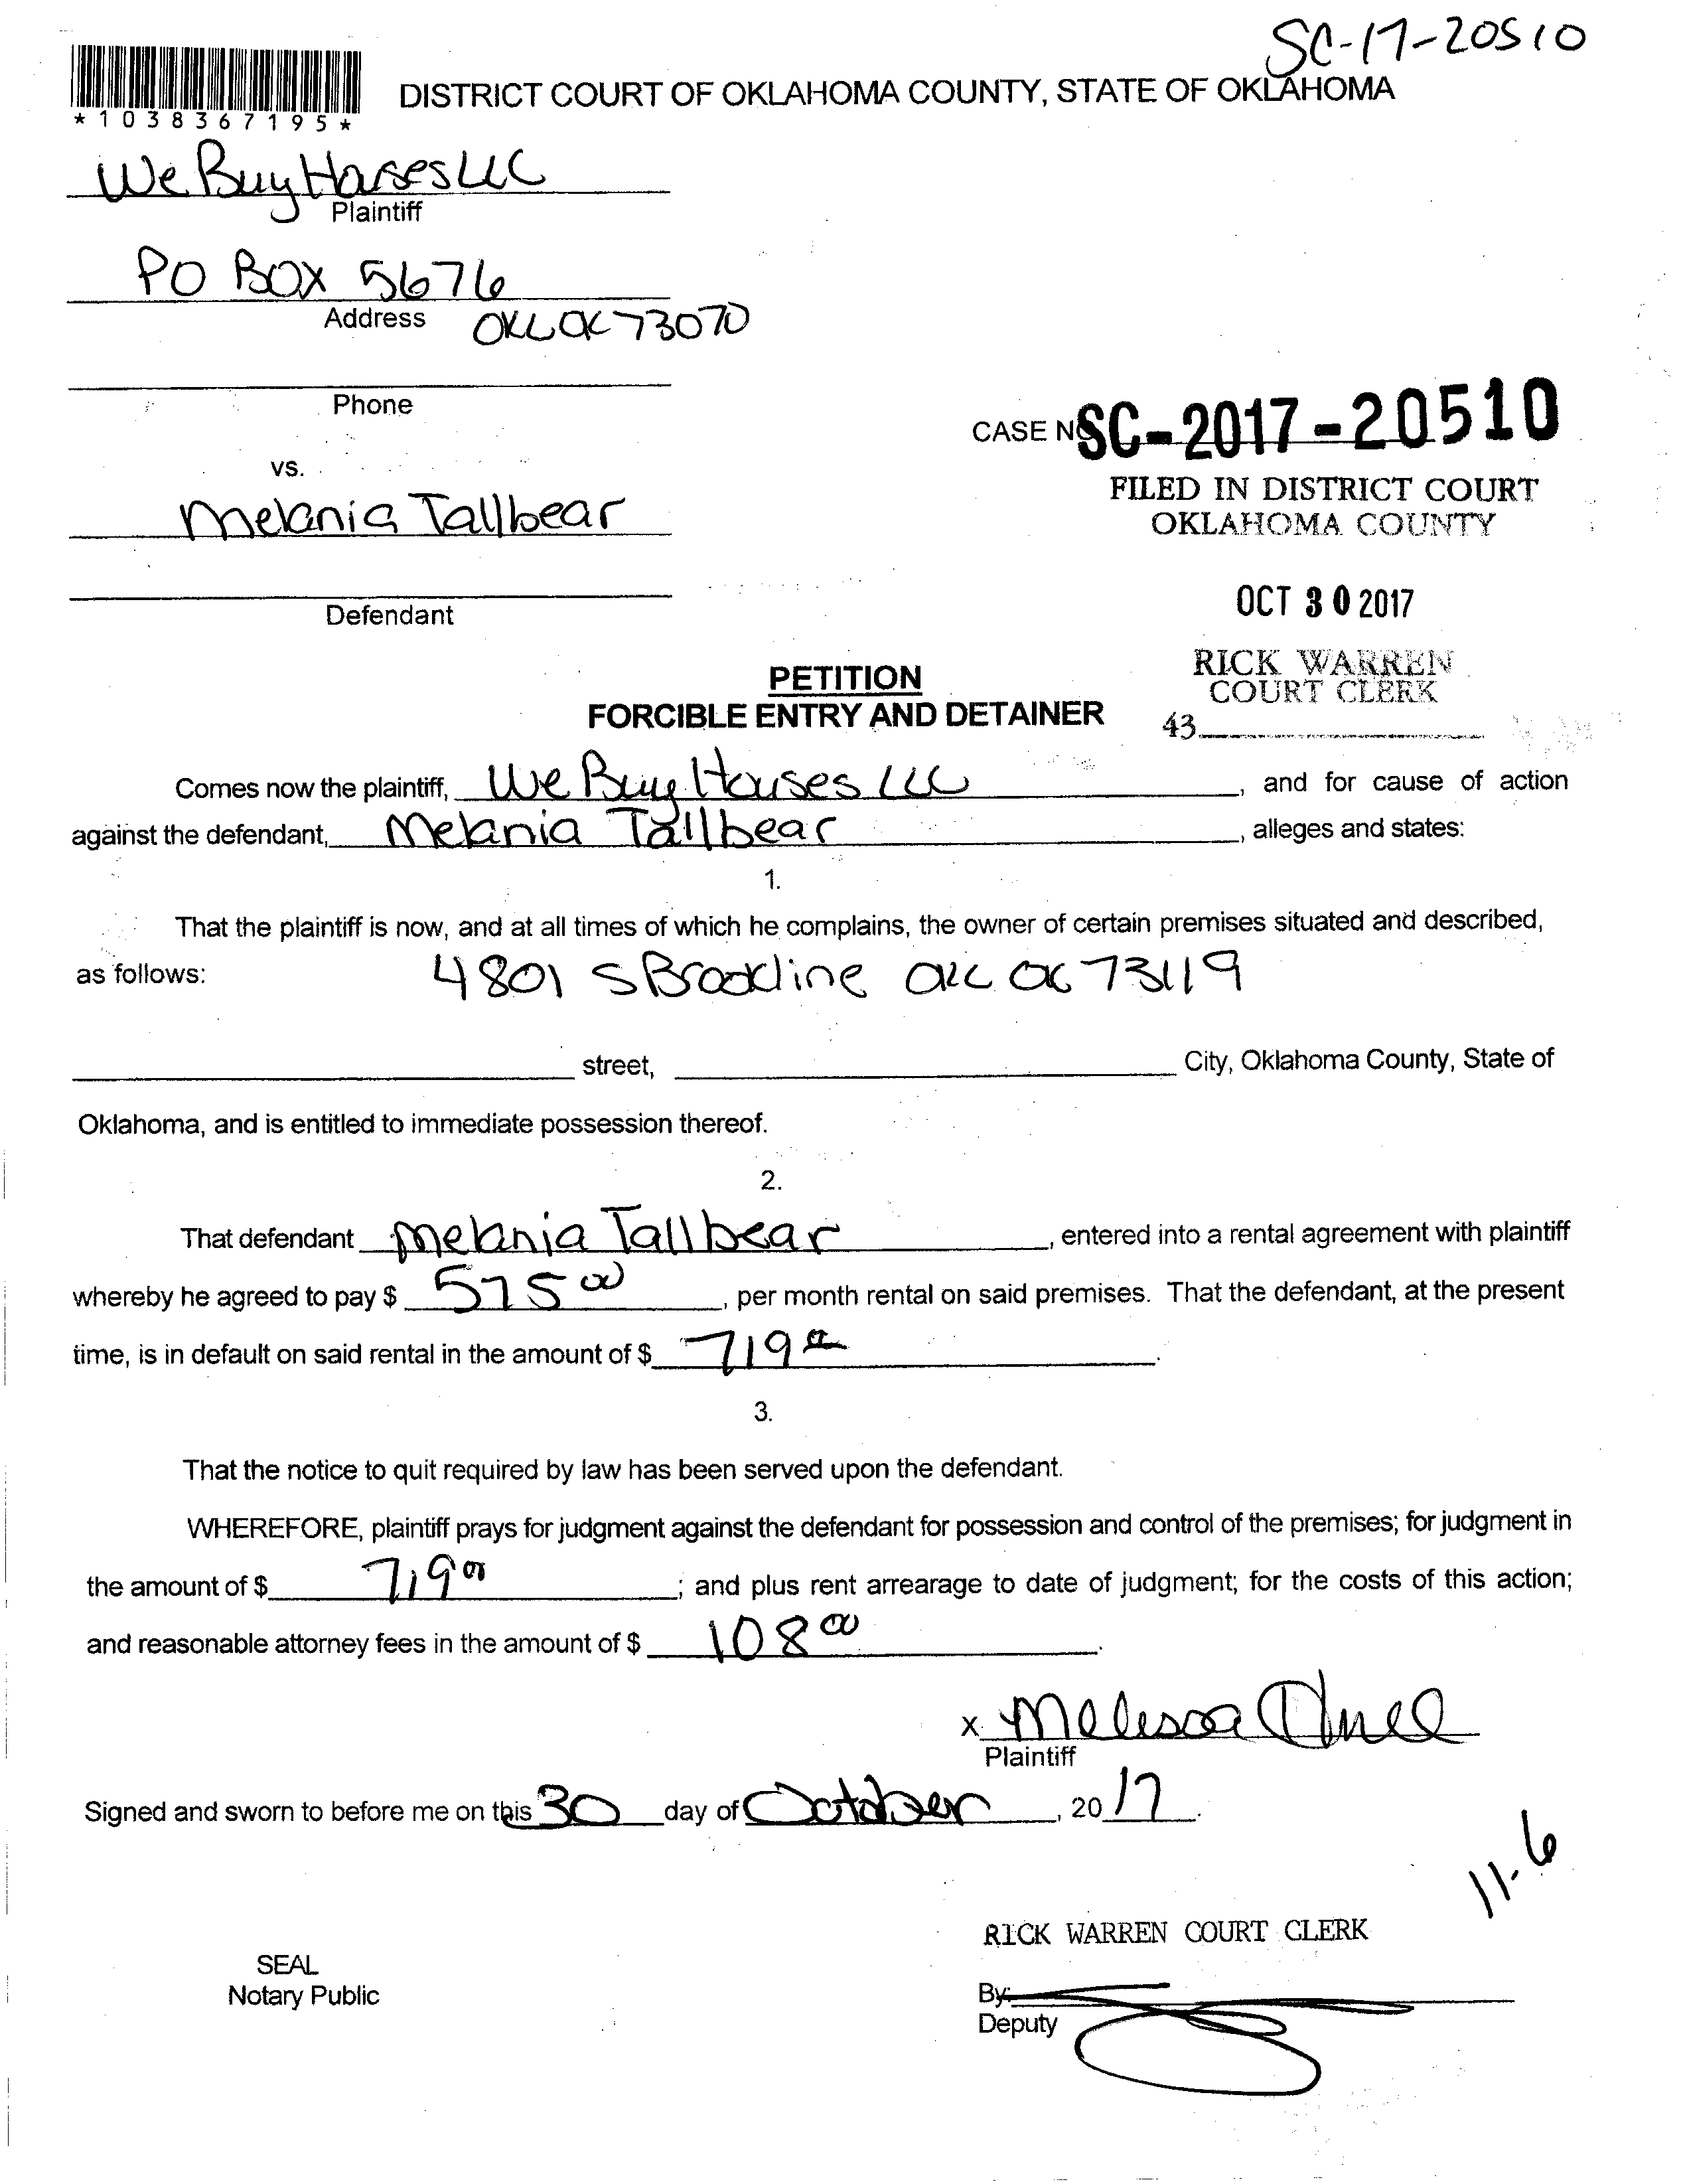 SC-17-20510
*1038367195*
DISTRICT COURT OF OKLAHOMA COUNTY, STATE OF OKLAHOMA
We Buy Houses LLC
Plaintiff
PO BOX 5676
Address OKC OK 73070
Phone
CASE NO SC-2017-20510
vs.
FILED IN DISTRICT COURT
OKLAHOMA COUNTY
Melania Tallbear
Defendant
OCT 30 2017
RICK WARREN
COURT CLERK
43
PETITION
FORCIBLE ENTRY AND DETAINER
Comes now the plaintiff, We Buy Houses LLC, and for cause of action
against the defendant, Melania Tallbear, alleges and states:
1.
That the plaintiff is now, and at all times of which he complains, the owner of certain premises situated and described,
as follows: 4801 S Brookline OKC OK 73119
street, City, Oklahoma County, State of
Oklahoma, and is entitled to immediate possession thereof.
2.
That defendant Melania Tallbear, entered into a rental agreement with plaintiff
whereby he agreed to pay $ 575 00, per month rental on said premises. That the defendant, at the present
time, is in default on said rental in the amount of $ 719 00.
3.
That the notice to quit required by law has been served upon the defendant.
WHEREFORE, plaintiff prays for judgment against the defendant for possession and control of the premises; for judgment in
the amount of $ 719 00; and plus rent arrearage to date of judgment; for the costs of this action;
and reasonable attorney fees in the amount of $ 108 00.
x Melissa
Plaintiff
Signed and sworn to before me on this 30 day of October, 20 17.
11-6
RICK WARREN COURT CLERK
SEAL
Notary Public
By:
Deputy